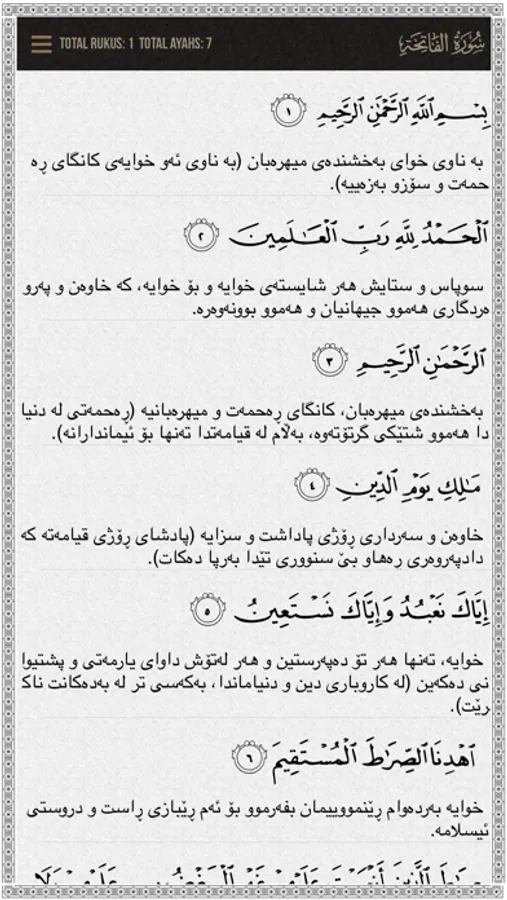 TOTAL RUKUS: 1 TOTAL AYAHS: 7
سُورَةُ الفَاتِحَةِ
بِسْمِ ٱللَّهِ ٱلرَّحْمَٰنِ ٱلرَّحِيمِ ١
به ناوی خوای بەخشندەی میهرەبان (بە ناوی ئەو خوایەی کانگای ڕە
حمەت و سۆزو بەزەییە).
ٱلْحَمْدُ لِلَّهِ رَبِّ ٱلْعَـٰلَمِينَ ٢
سوپاس و ستایش هەر شایستەی خوایە و بۆ خوایە، کە خاوەن و پەرو
ەردگاری هەموو جیهانیان و هەموو بوونەوەرە.
ٱلرَّحْمَٰنِ ٱلرَّحِيمِ ٣
بەخشندەی میهرەبان، کانگای ڕەحمەت و میهرەبانیە (ڕەحمەتی لە دنیا
دا هەموو شتێکی گرتۆتەوە، بەڵام لە قیامەتدا تەنها بۆ ئیماندارانە).
مَـٰلِكِ يَوْمِ ٱلدِّينِ ٤
خاوەن و سەرداری ڕۆژی پاداشت و سزایە (پادشای ڕۆژی قیامەتە کە
دادپەروەری ڕەهاو بێ سنووری تێدا بەرپا دەکات).
إِيَّاكَ نَعْبُدُ وَإِيَّاكَ نَسْتَعِينُ ٥
خوایە، تەنها هەر تۆ دەپەرستین و هەر لەتۆش داوای یارمەتی و پشتیوا
نی دەکەین (لە کاروباری دین و دنیاماندا، بەکەسی تر لە بەدەکانت ناک
رێت).
ٱهْدِنَا ٱلصِّرَٰطَ ٱلْمُسْتَقِيمَ ٦
خوایە بەردەوام ڕێنموویيمان بفەرموو بۆ ئەم ڕێبازی ڕاست و دروستی
ئیسلامە.